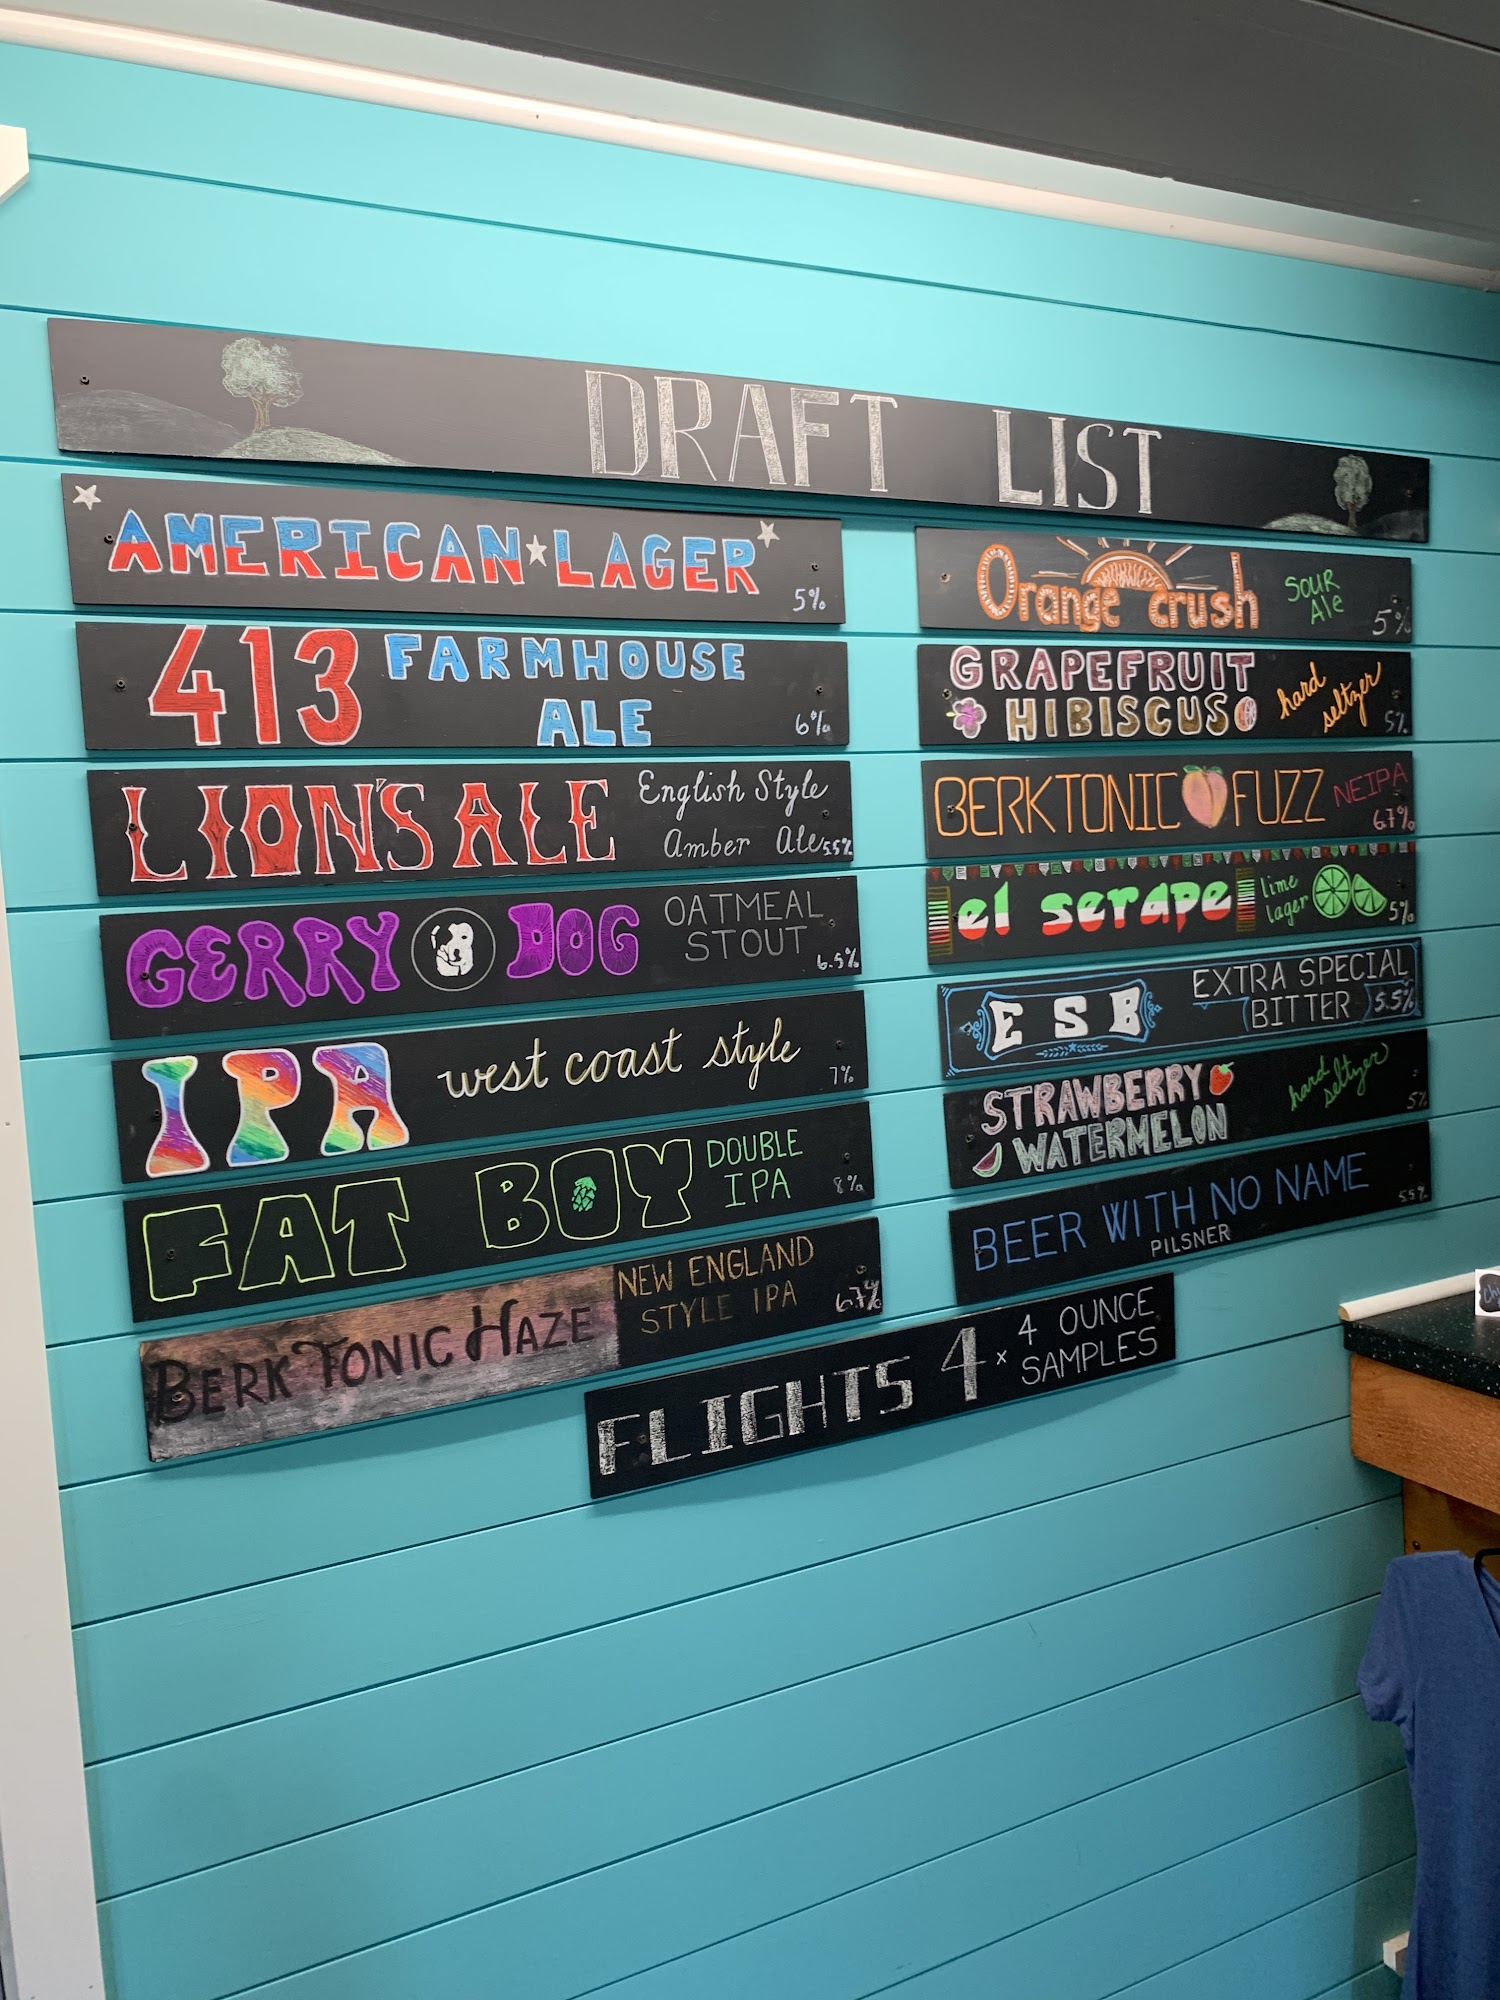 DRAFT LIST
AMERICAN LAGER
5%
413 FARMHOUSE
ALE
6%
LION'S ALE
English Style
Amber Ale 5.5%
GERRY DOG
OATMEAL
STOUT
6.5%
IPA west coast style
7%
FAT BOY
DOUBLE
IPA
8%
BERKTONIC HAZE
NEW ENGLAND
STYLE IPA
6.7%
Orange crush
SOUR
Ale
5%
GRAPEFRUIT
HIBISCUS
hard
seltzer
5%
BERKTONIC FUZZ
NEIPA
6.7%
el serape
lime
lager
5%
ESB
EXTRA SPECIAL
BITTER 5.5%
STRAWBERRY
WATERMELON
hard
seltzer
5%
BEER WITH NO NAME
PILSNER
5.5%
FLIGHTS 4 x
4 OUNCE
SAMPLES